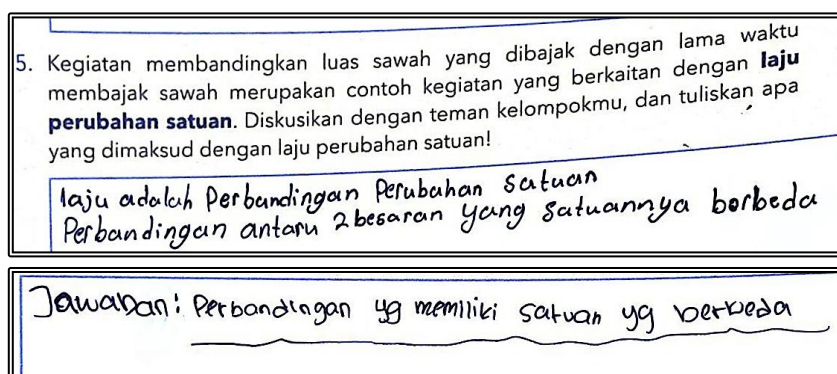 5. Kegiatan membandingkan luas sawah yang dibajak dengan lama waktu
membajak sawah merupakan contoh kegiatan yang berkaitan dengan laju
perubahan satuan. Diskusikan dengan teman kelompokmu, dan tuliskan apa
yang dimaksud dengan laju perubahan satuan!
laju adalah Perbandingan Perubahan Satuan
Perbandingan antara 2 besaran yang satuannya berbeda
Jawaban: Perbandingan yg memiliki satuan yg berbeda